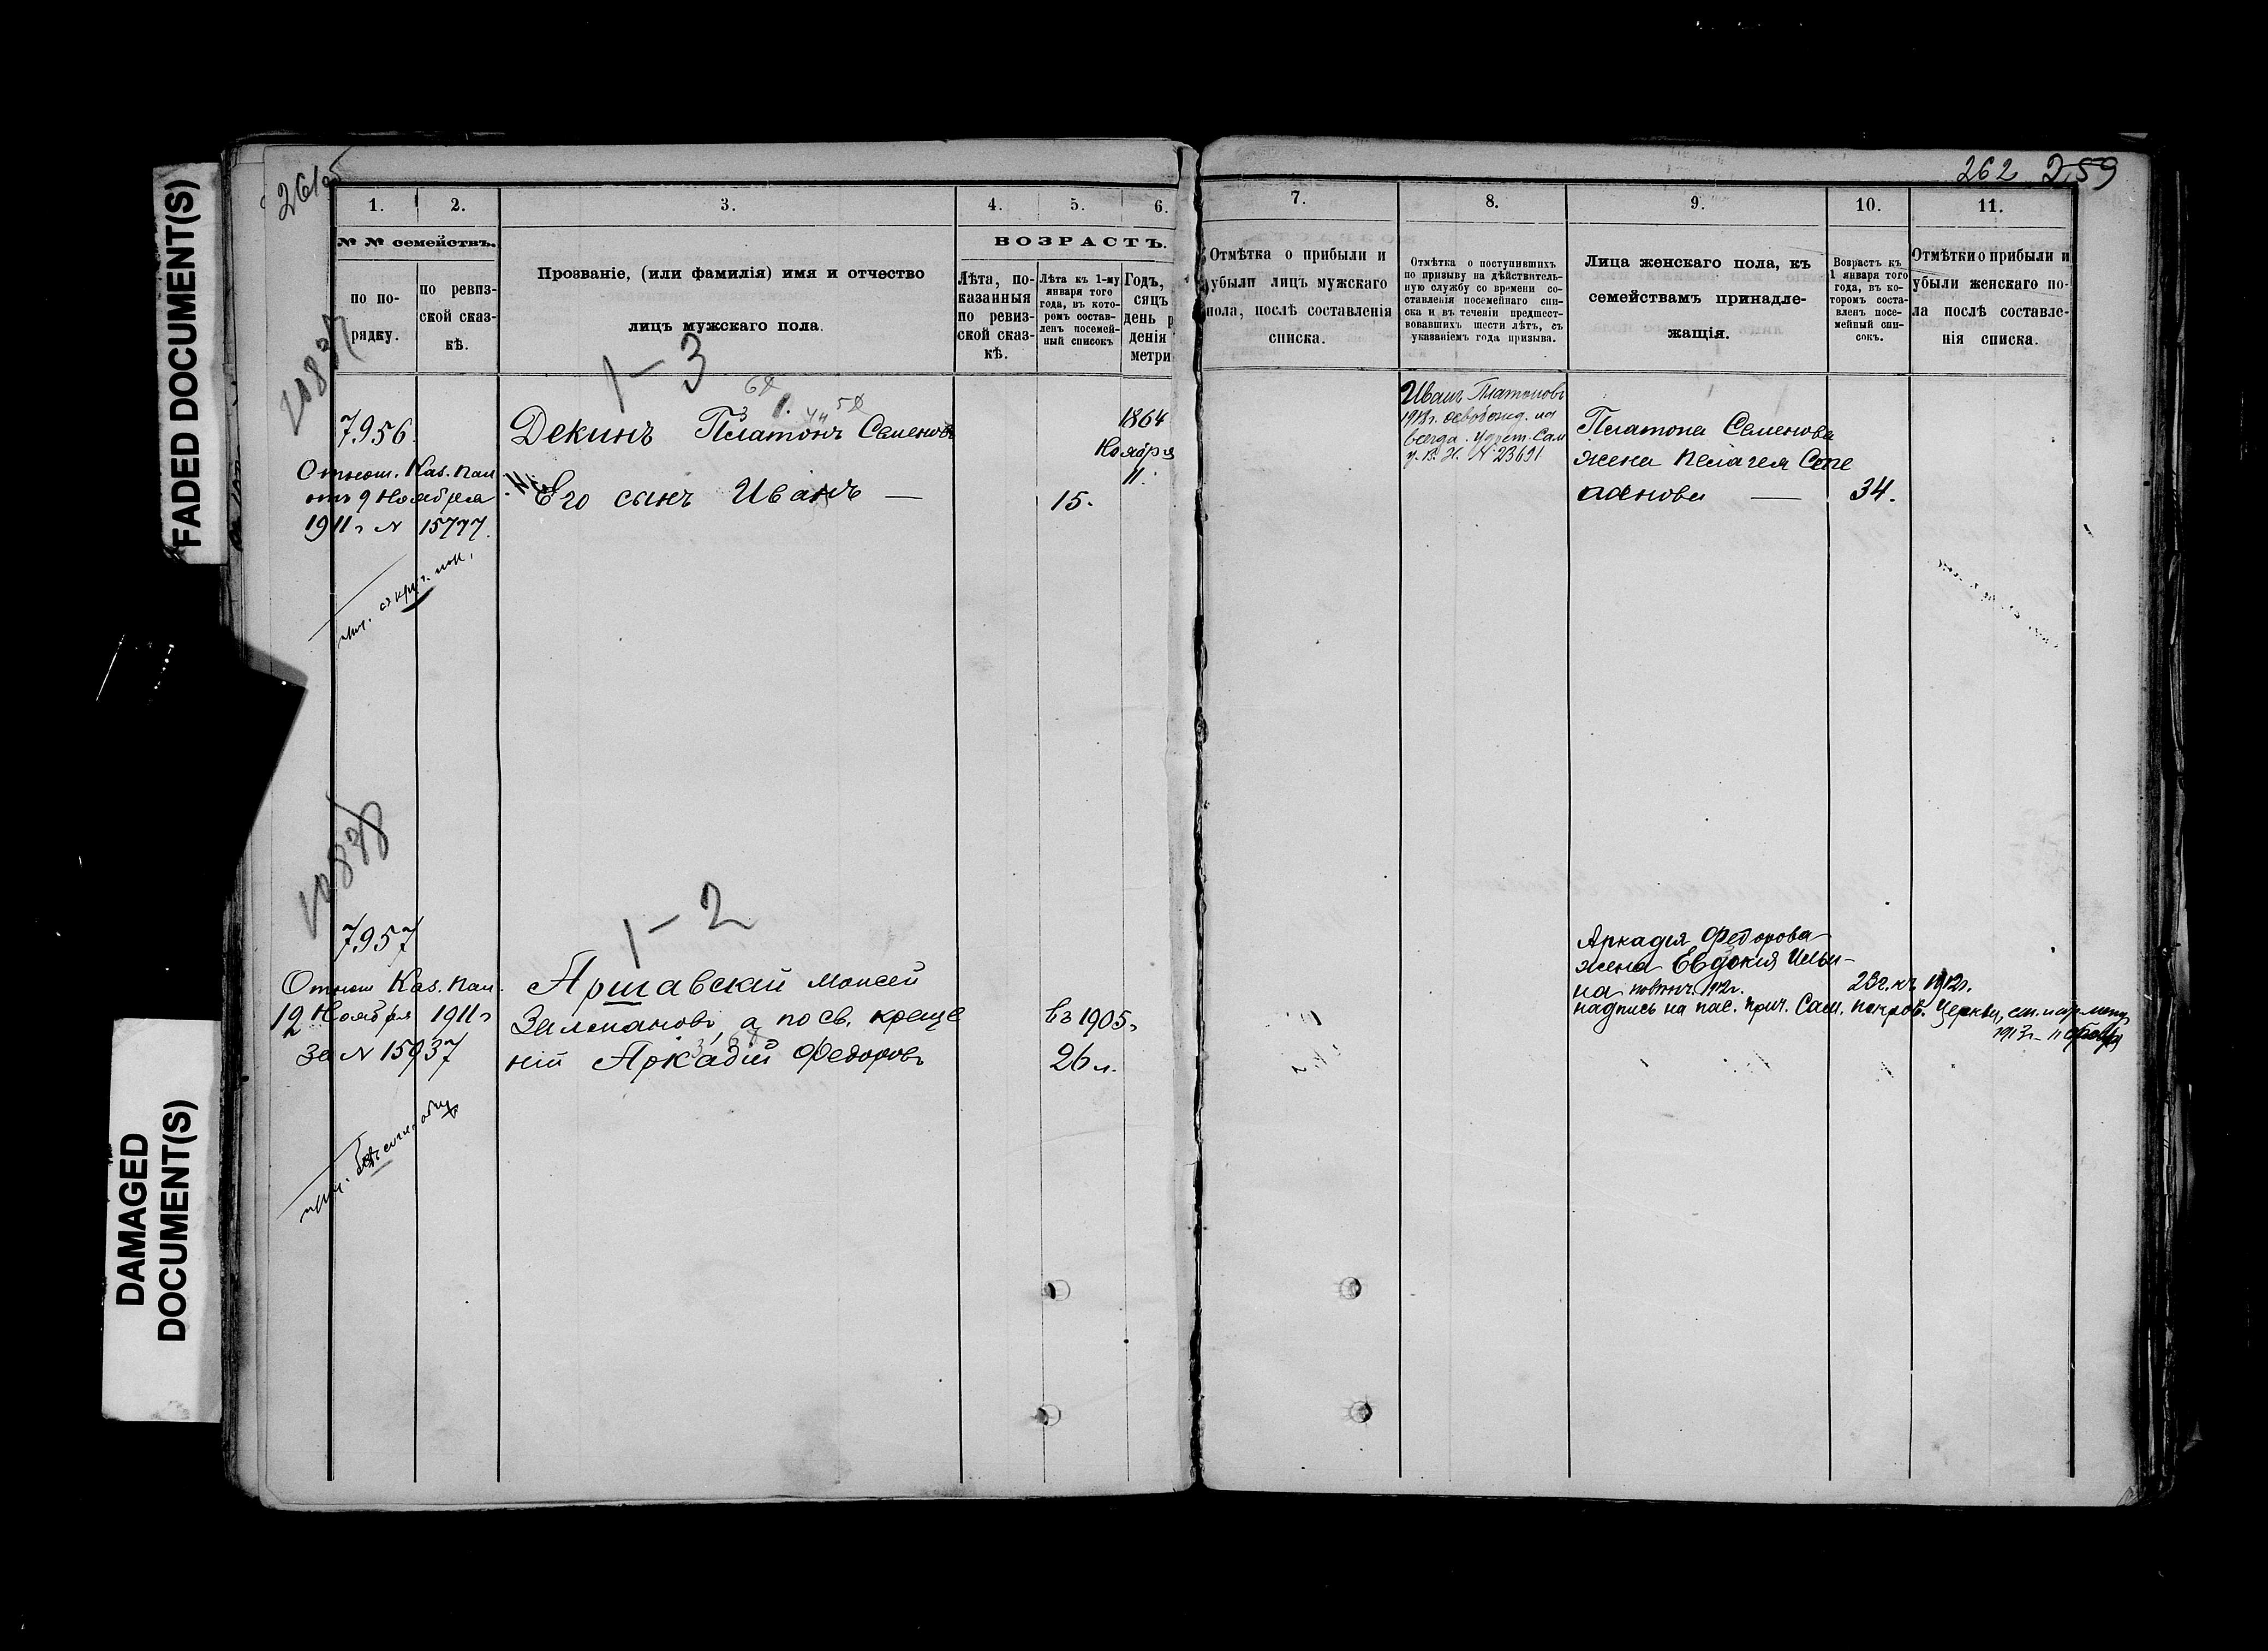 FADED DOCUMENT(S)
DAMAGED
DOCUMENT(S)
261
262 259
1. 2. 3. 4. 5. 6.
№ № семействъ.
по по-
рядку.
по ревиз-
ской сказ-
кѣ.
Прозваніе, (или фамилія) имя и отчество
лицъ мужскаго пола.
ВОЗРАСТЪ.
Лѣта, по-
казанныя
по ревиз-
ской сказ-
кѣ.
Лѣта къ 1-му
января того
года, въ кото-
ромъ состав-
ленъ посемей-
ный списокъ
Годъ,
сяцъ
день р
денія
метри
1-3
7956.
Декинъ Платонъ Семеновъ
1864
Ноября
11.
Отнош. Каз. Пал
отъ 9 Ноября
1911 г N 15777.
Его сынъ Иванъ —
15.
10878
1-2
7957
Отнош Каз. Пал.
12 Ноября 1911 г
за N 15937
Аршавскій Моисей
Залмановъ, а по св. креще
ній Аркадій Федоровъ
въ 1905 г
26 л.
7. 8. 9. 10. 11.
Отмѣтка о прибыли и
убыли лицъ мужскаго
пола, послѣ составленія
списка.
Отмѣтка о поступившихъ
по призыву на дѣйствитель-
ную службу со времени со-
ставленія посемейнаго спи-
ска и въ теченіи предшест-
вовавшихъ шести лѣтъ, съ
указаніемъ года призыва.
Лица женскаго пола, къ
семействамъ принадле-
жащія.
Возрастъ къ
1 января того
года, въ ко-
торомъ соста-
вленъ посе-
мейный спи-
сокъ.
Отмѣтки о прибыли и
убыли женскаго по-
ла послѣ составле-
нія списка.
Иванъ Платоновъ
освобожд. на
всегда. Сам
N 23691
Платона Семенова
жена Пелагея Сте
панова —
34.
Аркадія Федорова
жена Евдокія Ильи-
на 1912 г.
23 г. къ 1912 г.
надпись на пас. прич. Сам. Покров. Церкви,
1913 г.